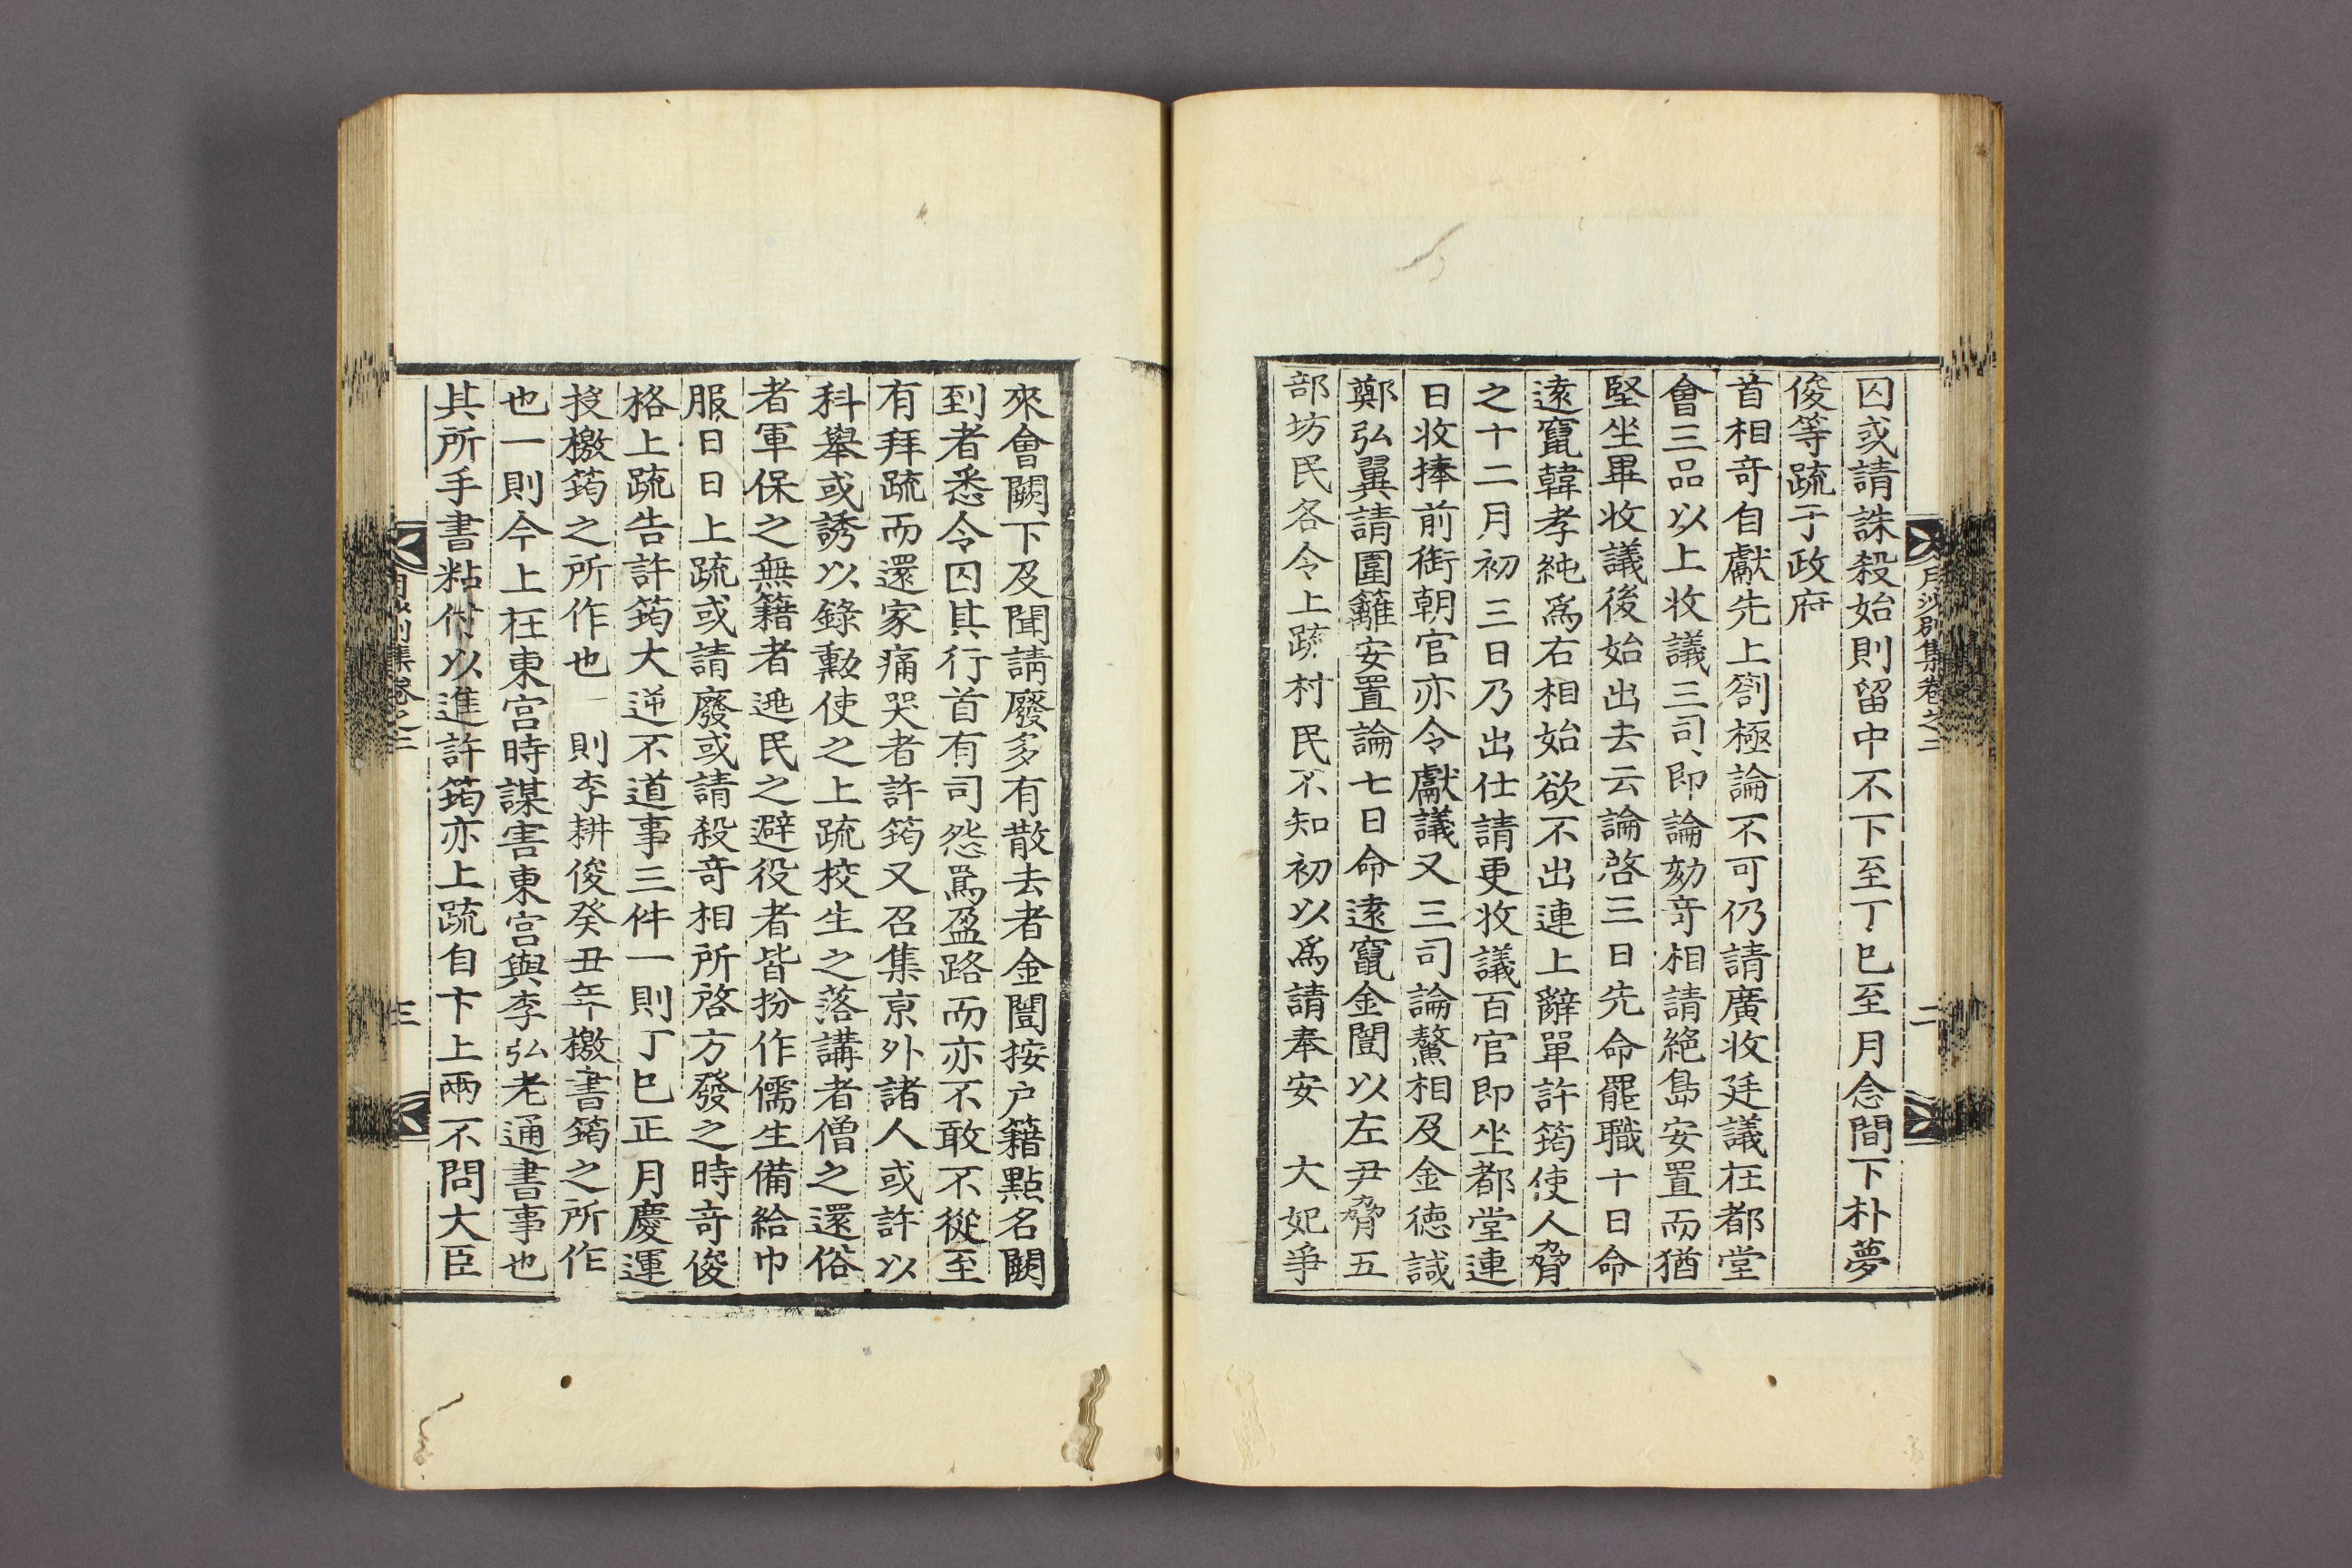 月沙別集卷之二
二
囚或請誅殺始則留中不下至丁巳至月念間下朴夢
俊等疏于政府
首相竒自獻先上劄極論不可仍請廣收廷議在都堂
會三品以上收議三司即論劾竒相請絶島安置而猶
堅坐畢收議後始出去云論啓三日先命罷職十日命
遠竄韓孝純爲右相始欲不出連上辭單許筠使人脅
之十二月初三日乃出仕請更收議百官即坐都堂連
日收捧前銜朝官亦令獻議又三司論鰲相及金德諴
鄭弘翼請圍籬安置論七日命遠竄金闓以左尹脅五
部坊民各令上疏村民不知初以爲請奉安 大妃爭
來會闕下及聞請廢多有散去者金闓按户籍點名闕
到者悉令囚其行首有司怨罵盈路而亦不敢不從至
有拜疏而還家痛哭者許筠又召集京外諸人或許以
科擧或誘以錄勳使之上疏校生之落講者僧之還俗
者軍保之無籍者逃民之避役者皆扮作儒生備給巾
服日日上疏或請廢或請殺竒相所啓方發之時竒俊
格上疏告許筠大逆不道事三件一則丁巳正月慶運
投檄筠之所作也一則李耕俊癸丑年檄書筠之所作
也一則今上在東宮時謀害東宮與李弘老通書事也
其所手書粘付以進許筠亦上疏自卞上兩不問大臣
月沙別集卷之二
三